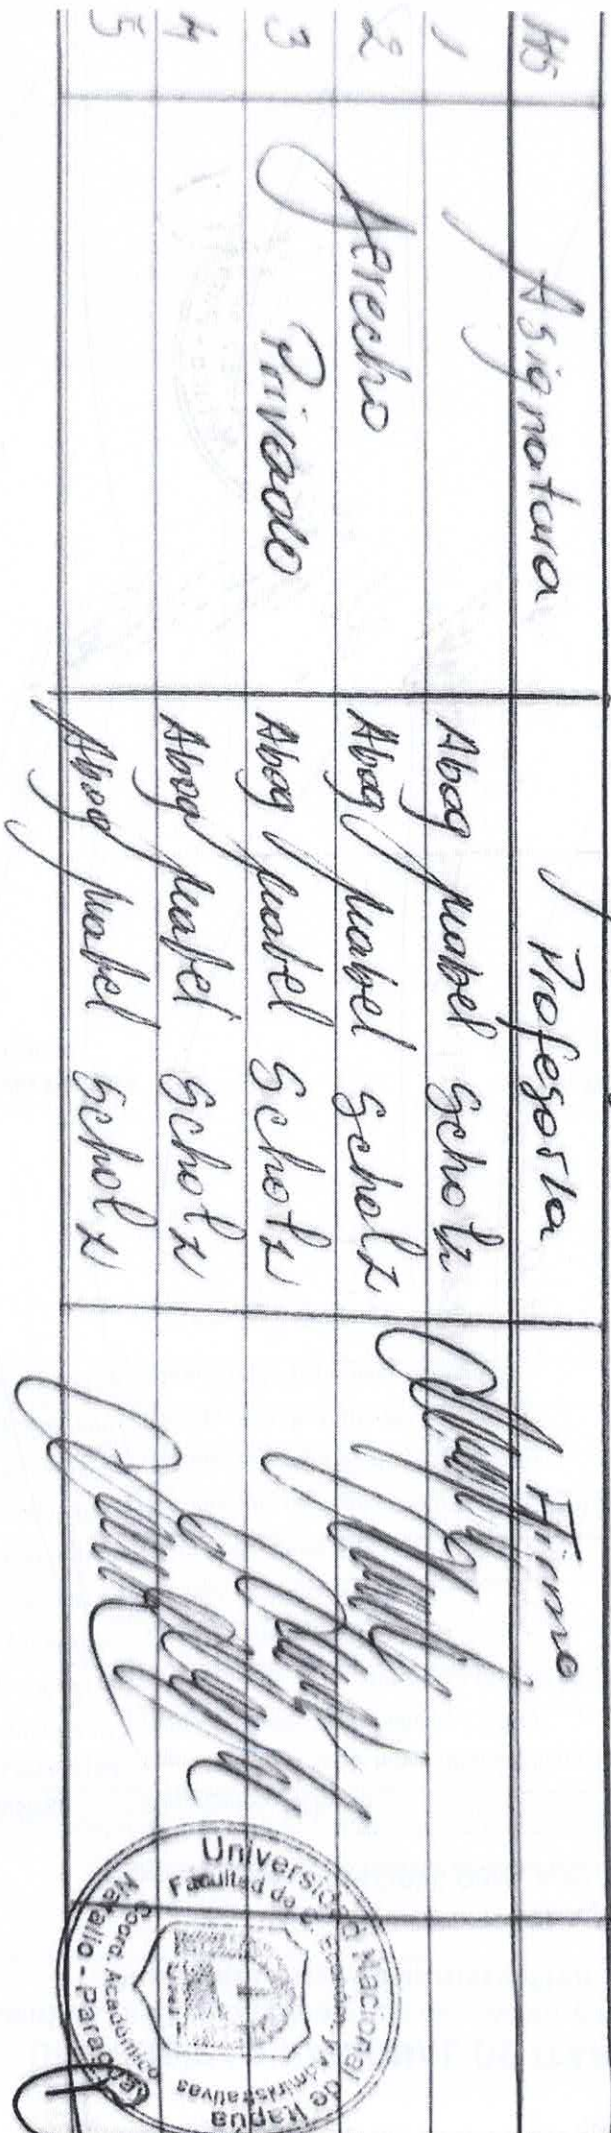 Hs Asignatura Profesor/a Firma
1 Abog Mabel Scholz
2 Derecho Abog Mabel Scholz
3 Privado Abog Mabel Scholz
4 Abog Mabel Scholz
5 Abog Mabel Scholz
Universidad Nacional de Itapúa
Facultad de C. Econom. y Administrativas
Coord. Académica
Natalio - Paraguay